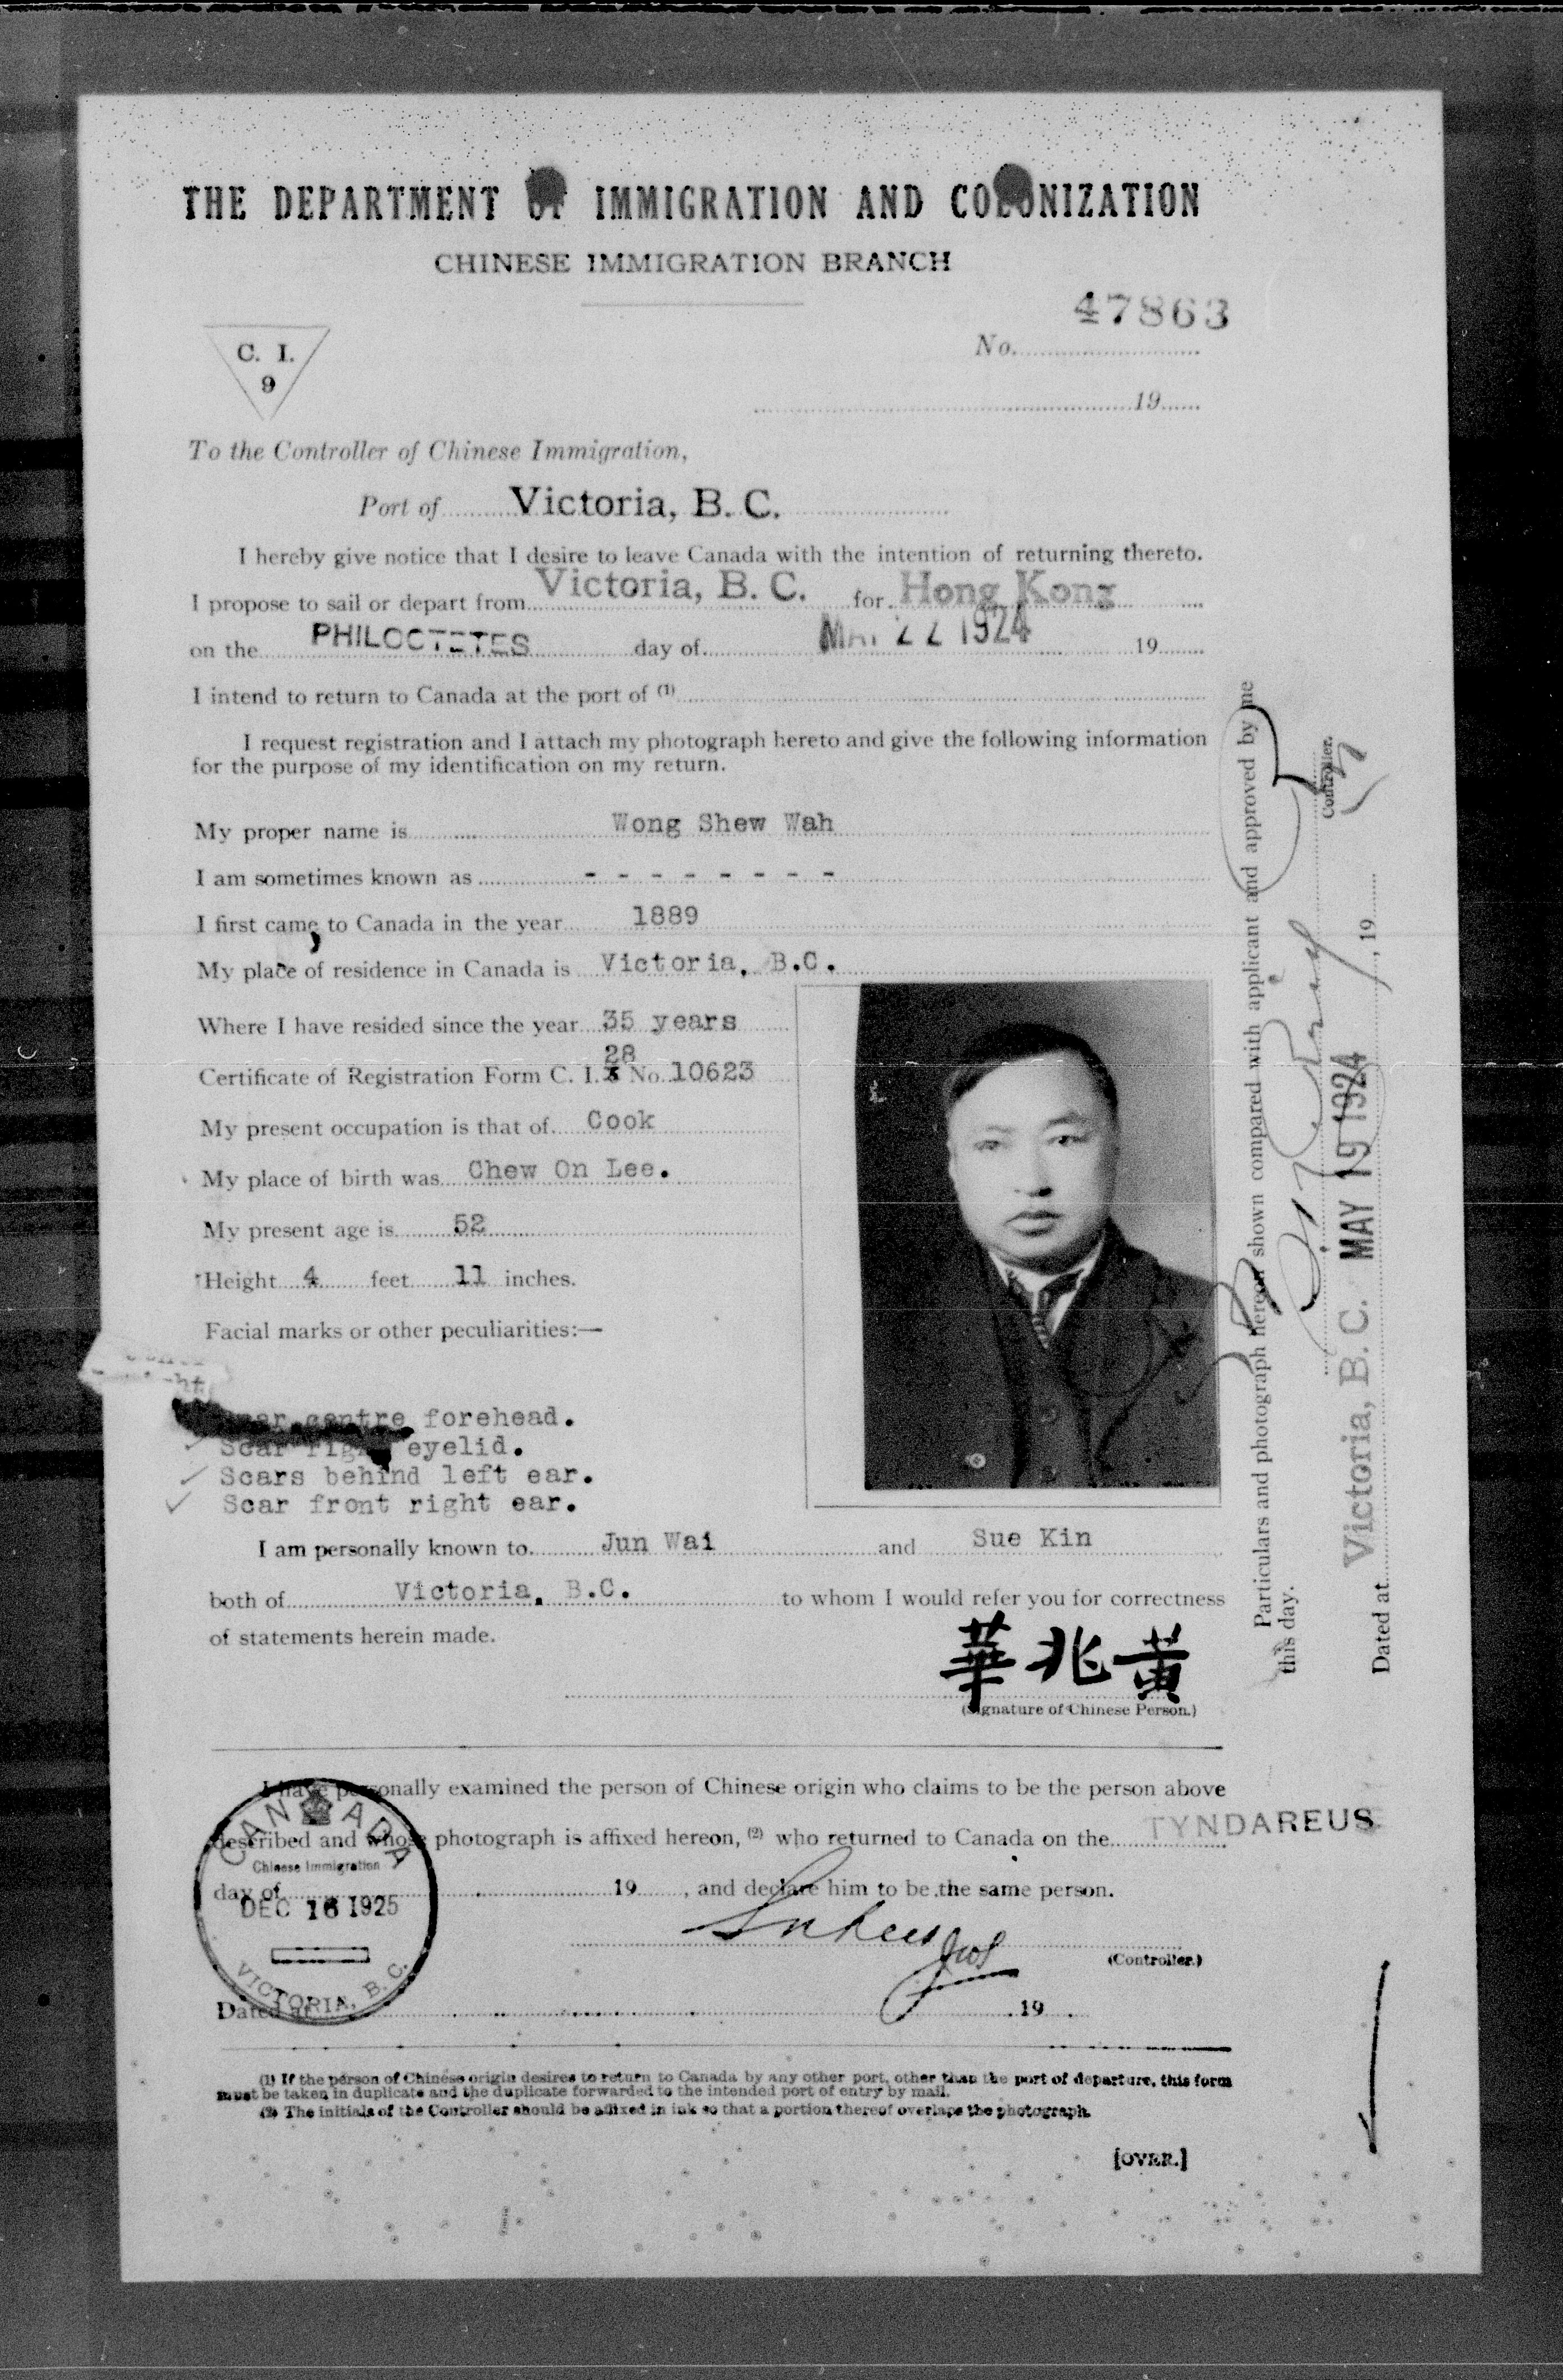 THE DEPARTMENT OF IMMIGRATION AND COLONIZATION
CHINESE IMMIGRATION BRANCH
47863
No.
C. I.
9
19
To the Controller of Chinese Immigration,
Port of Victoria, B. C.
I hereby give notice that I desire to leave Canada with the intention of returning thereto.
I propose to sail or depart from Victoria, B. C. for Hong Kong
on the PHILOCTETES day of MAY 22 1924 19
I intend to return to Canada at the port of (1)
I request registration and I attach my photograph hereto and give the following information
for the purpose of my identification on my return.
My proper name is Wong Shew Wah
I am sometimes known as - - - - - - - -
I first came to Canada in the year 1889
My place of residence in Canada is Victoria, B.C.
Where I have resided since the year 35 years
28
Certificate of Registration Form C. I. No. 10623
My present occupation is that of Cook
My place of birth was Chew On Lee.
My present age is 52
Height 4 feet 11 inches.
Facial marks or other peculiarities:—
centre forehead.
Scar right eyelid.
Scars behind left ear.
Scar front right ear.
I am personally known to Jun Wai and Sue Kin
both of Victoria, B.C. to whom I would refer you for correctness
of statements herein made.
華兆黃
(Signature of Chinese Person.)
I have personally examined the person of Chinese origin who claims to be the person above
described and whose photograph is affixed hereon, (2) who returned to Canada on the TYNDAREUS
day of 19 , and declare him to be the same person.
(Controller.)
Dated at 19
CANADA
Chinese Immigration
DEC 16 1925
VICTORIA, B. C.
(1) If the person of Chinese origin desires to return to Canada by any other port, other than the port of departure, this form
must be taken in duplicate and the duplicate forwarded to the intended port of entry by mail.
(2) The initials of the Controller should be affixed in ink so that a portion thereof overlaps the photograph.
[OVER.]
Particulars and photograph hereon shown compared with applicant and approved by me
this day.
Controller.
Dated at Victoria, B. C. MAY 19 1924 , 19